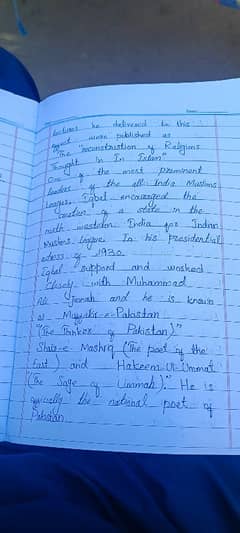 lectures he delivered in this
regard were published as
"The "reconstruction of Religious
Thought in In Islam"
One of the most prominent
leaders of the all India Muslims
League, Iqbal encouraged the
creation of a state in the
north western India for Indian
Muslims League In his presidential
adress of 1930.
Iqbal support and worked
closely with Muhammad
Ali Jinnah and he is known
as Mayyikr-e-Pakistan
"(The Thinker of Pakistan)"
Shair-e Mashriq (The poet of the
East) and Hakeem-Ul-Ummat
(The Sage of Ummah)." He is
the national poet of
Pakistan